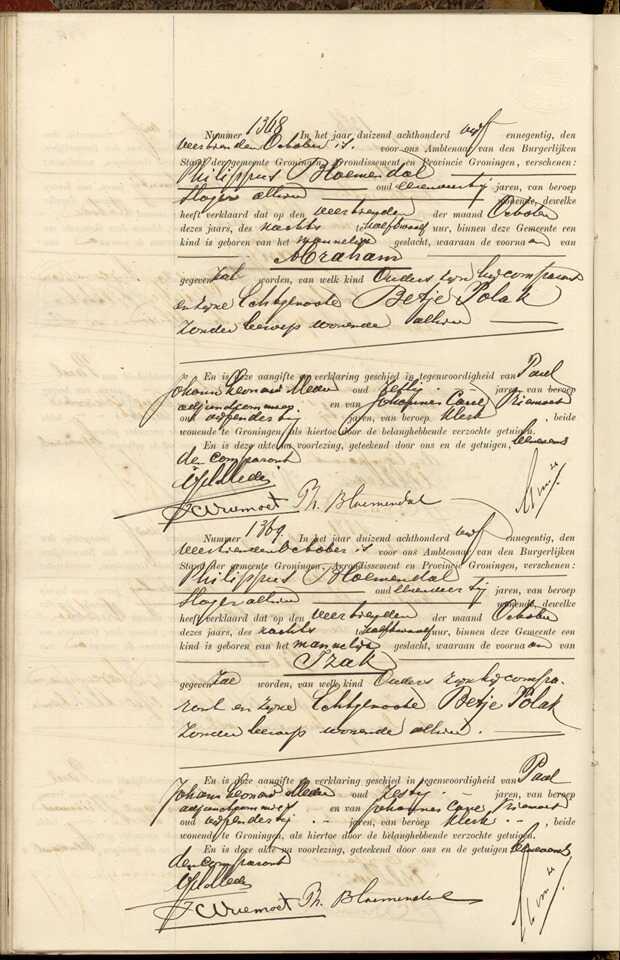 Nummer 1368 In het jaar duizend achthonderd vijf ennegentig, den
veertienden October is voor ons Ambtenaar van den Burgerlijken
Stand der gemeente Groningen, Arrondissement en Provincie Groningen, verschenen:
Philippus Bloemendal
Slager alhier oud jaren, van beroep
wonende, dewelke
heeft verklaard dat op den veertienden der maand October
dezes jaars, des nachts te half twaalf uur, binnen deze Gemeente een
kind is geboren van het mannelijk geslacht, waaraan de voornaam van
Abraham
gegeven zal worden, van welk kind Ouders zijn hij comparant
en zijne Echtgenoote Betje Polak
zonder beroep wonende alhier
En is deze aangifte en verklaring geschied in tegenwoordigheid van Paul
Johann Leonard oud zestig jaren, van beroep
en van Johannes Vriemoet
oud jaren, van beroep klerk, beide
wonende te Groningen, als hiertoe door de belanghebbende verzochte getuigen.
En is deze akte na voorlezing, geteekend door ons en de getuigen, benevens
den comparant
JCVriemoet Ph. Bloemendal
Nummer 1369. In het jaar duizend achthonderd vijf ennegentig, den
veertienden October is voor ons Ambtenaar van den Burgerlijken
Stand der gemeente Groningen, Arrondissement en Provincie Groningen, verschenen:
Philippus Bloemendal
oud jaren, van beroep
Slager alhier wonende, dewelke
heeft verklaard dat op den veertienden der maand October
dezes jaars, des nachts te half twaalf uur, binnen deze Gemeente een
kind is geboren van het mannelijk geslacht, waaraan de voornaam van
Izak
gegeven zal worden, van welk kind Ouders zijn hij compa-
rant en zijne Echtgenoote Betje Polak
zonder beroep wonende alhier.
En is deze aangifte en verklaring geschied in tegenwoordigheid van Paul
Johann Leonard oud zestig jaren, van beroep
en van Johannes Vriemoet
oud jaren, van beroep klerk, beide
wonende te Groningen, als hiertoe door de belanghebbende verzochte getuigen.
En is deze akte na voorlezing, geteekend door ons en de getuigen benevens
den comparant
JCVriemoet Ph. Bloemendal